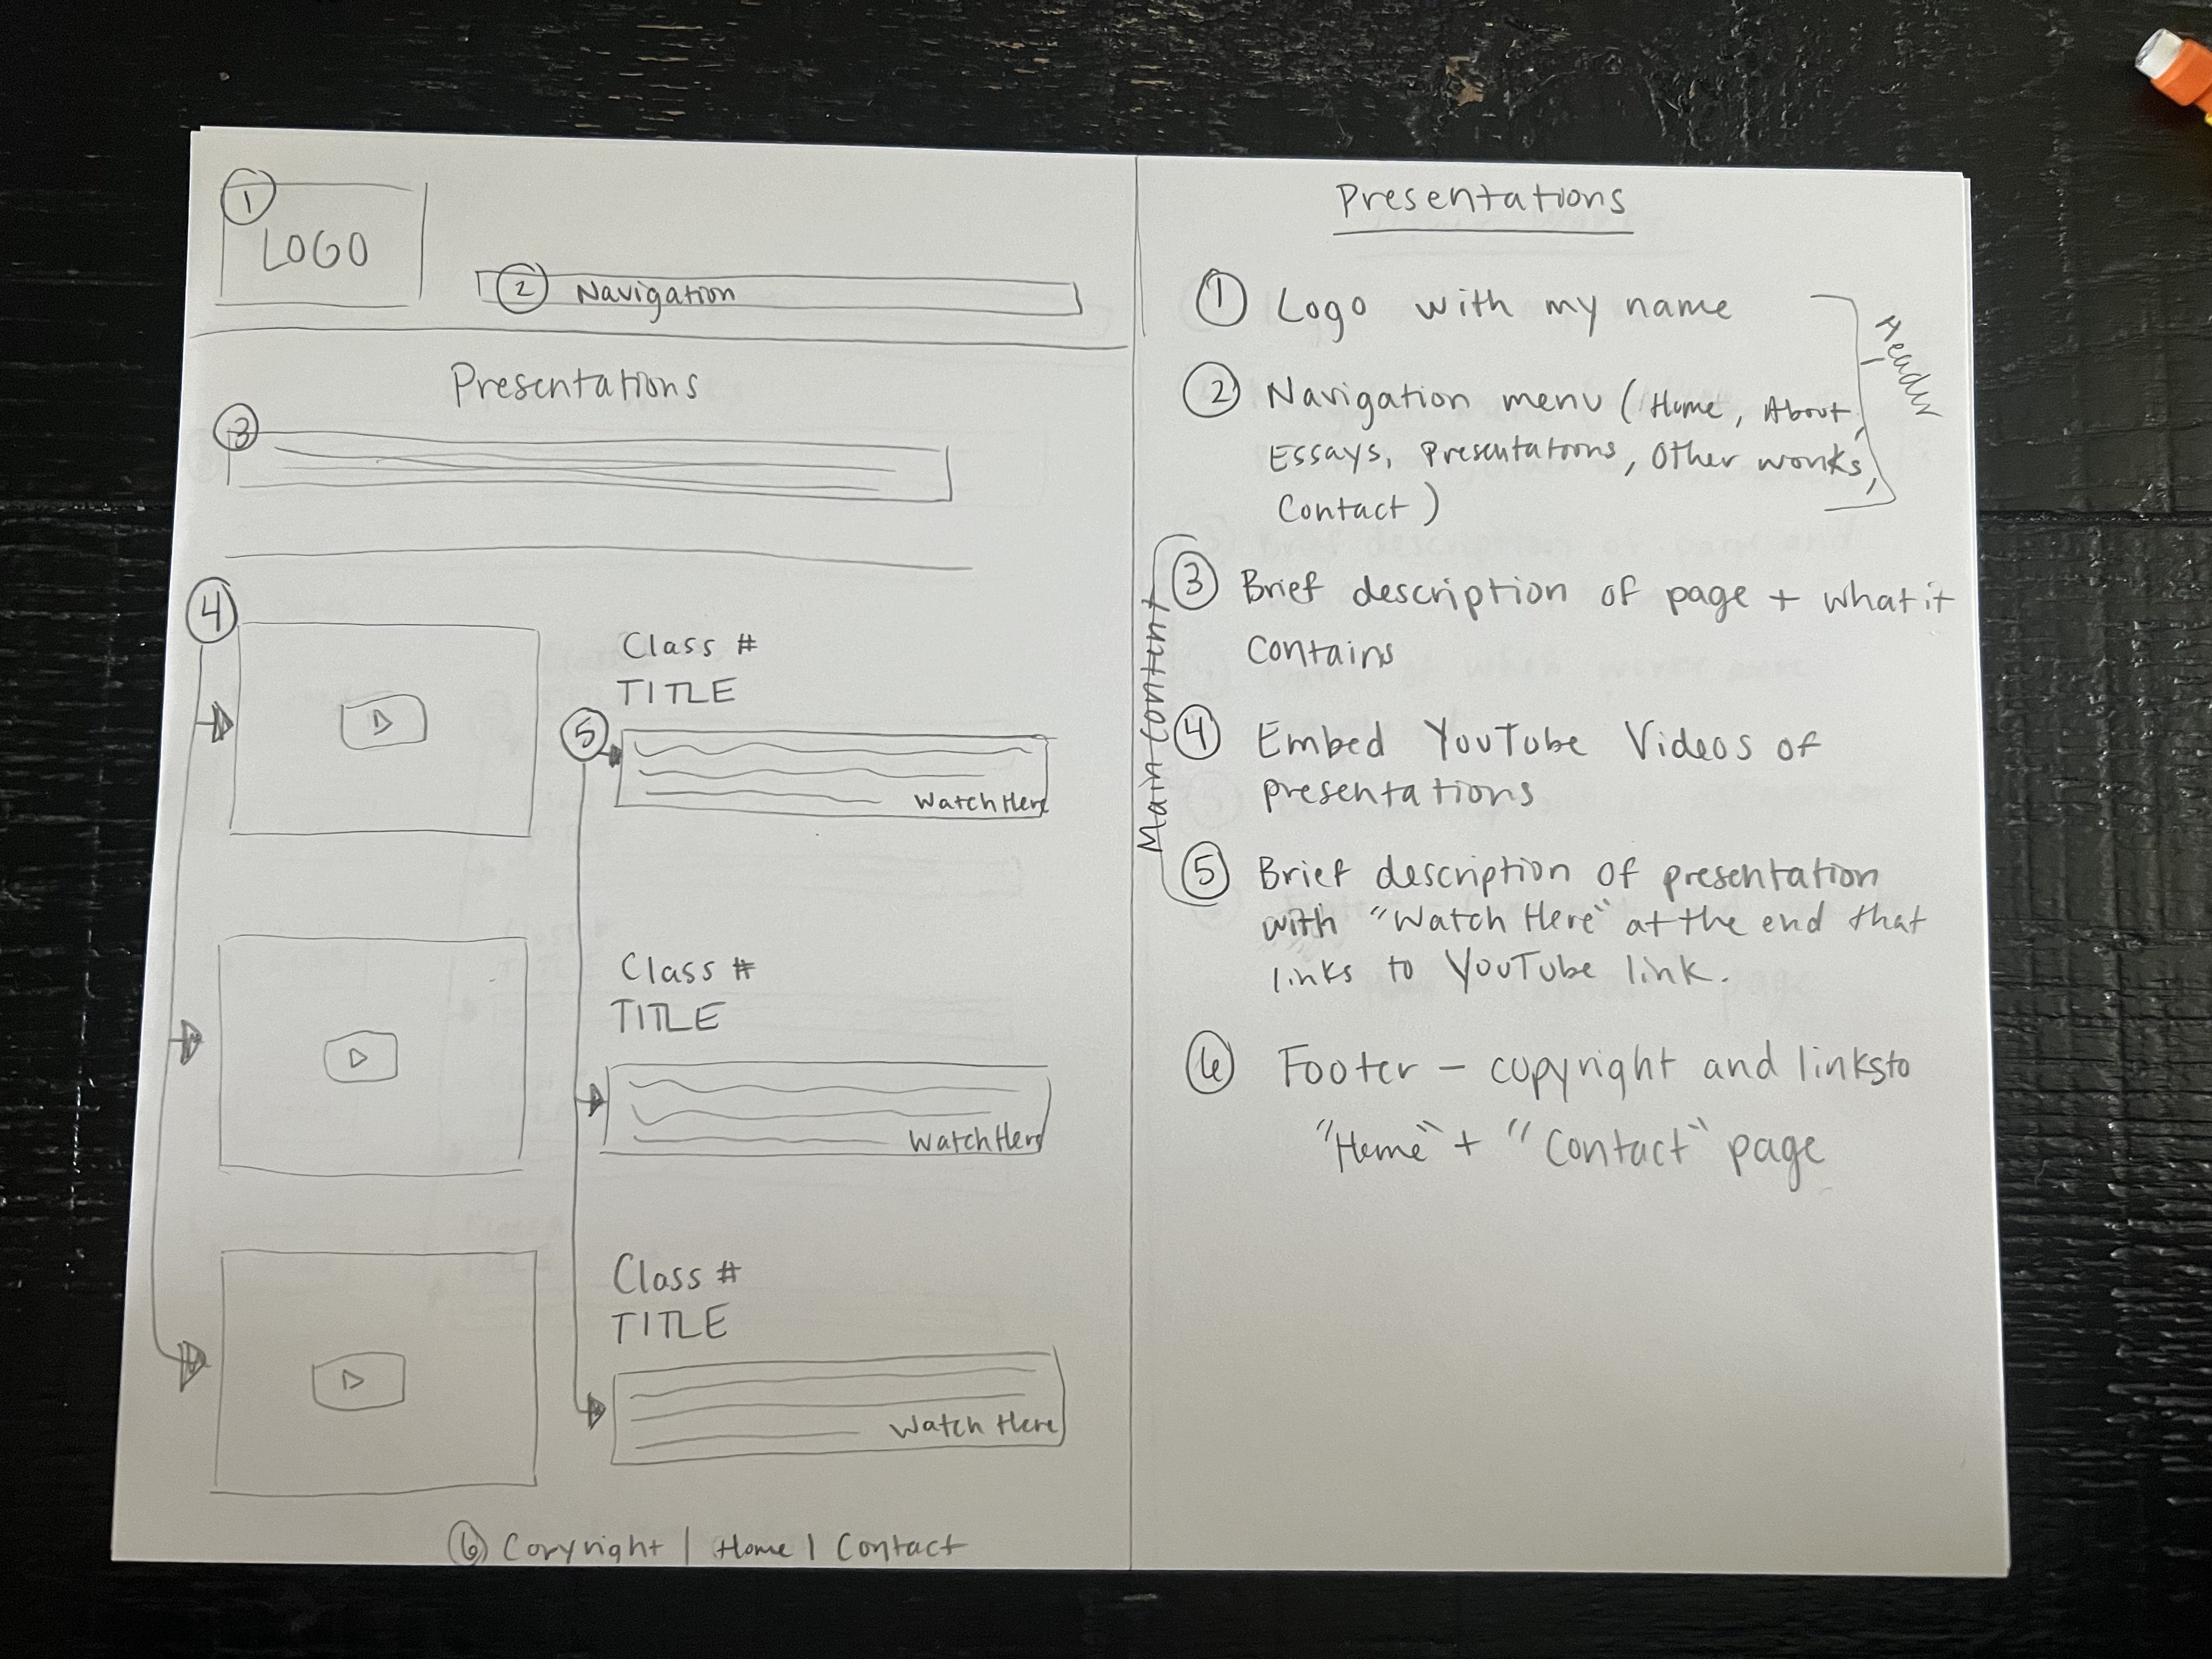 1
LOGO
2 Navigation
Presentations
3
4
Class #
TITLE
5
Watch Here
Class #
TITLE
Watch Here
Class #
TITLE
Watch Here
6 Copyright | Home | Contact
Presentations
1 Logo with my name
2 Navigation menu (Home, About,
Essays, Presentations, Other works,
Contact)
Header
3 Brief description of page + what it
contains
4 Embed YouTube Videos of
presentations
5 Brief description of presentation
with "Watch Here" at the end that
links to YouTube link.
Main Content
6 Footer - copyright and links to
"Home" + "Contact" page